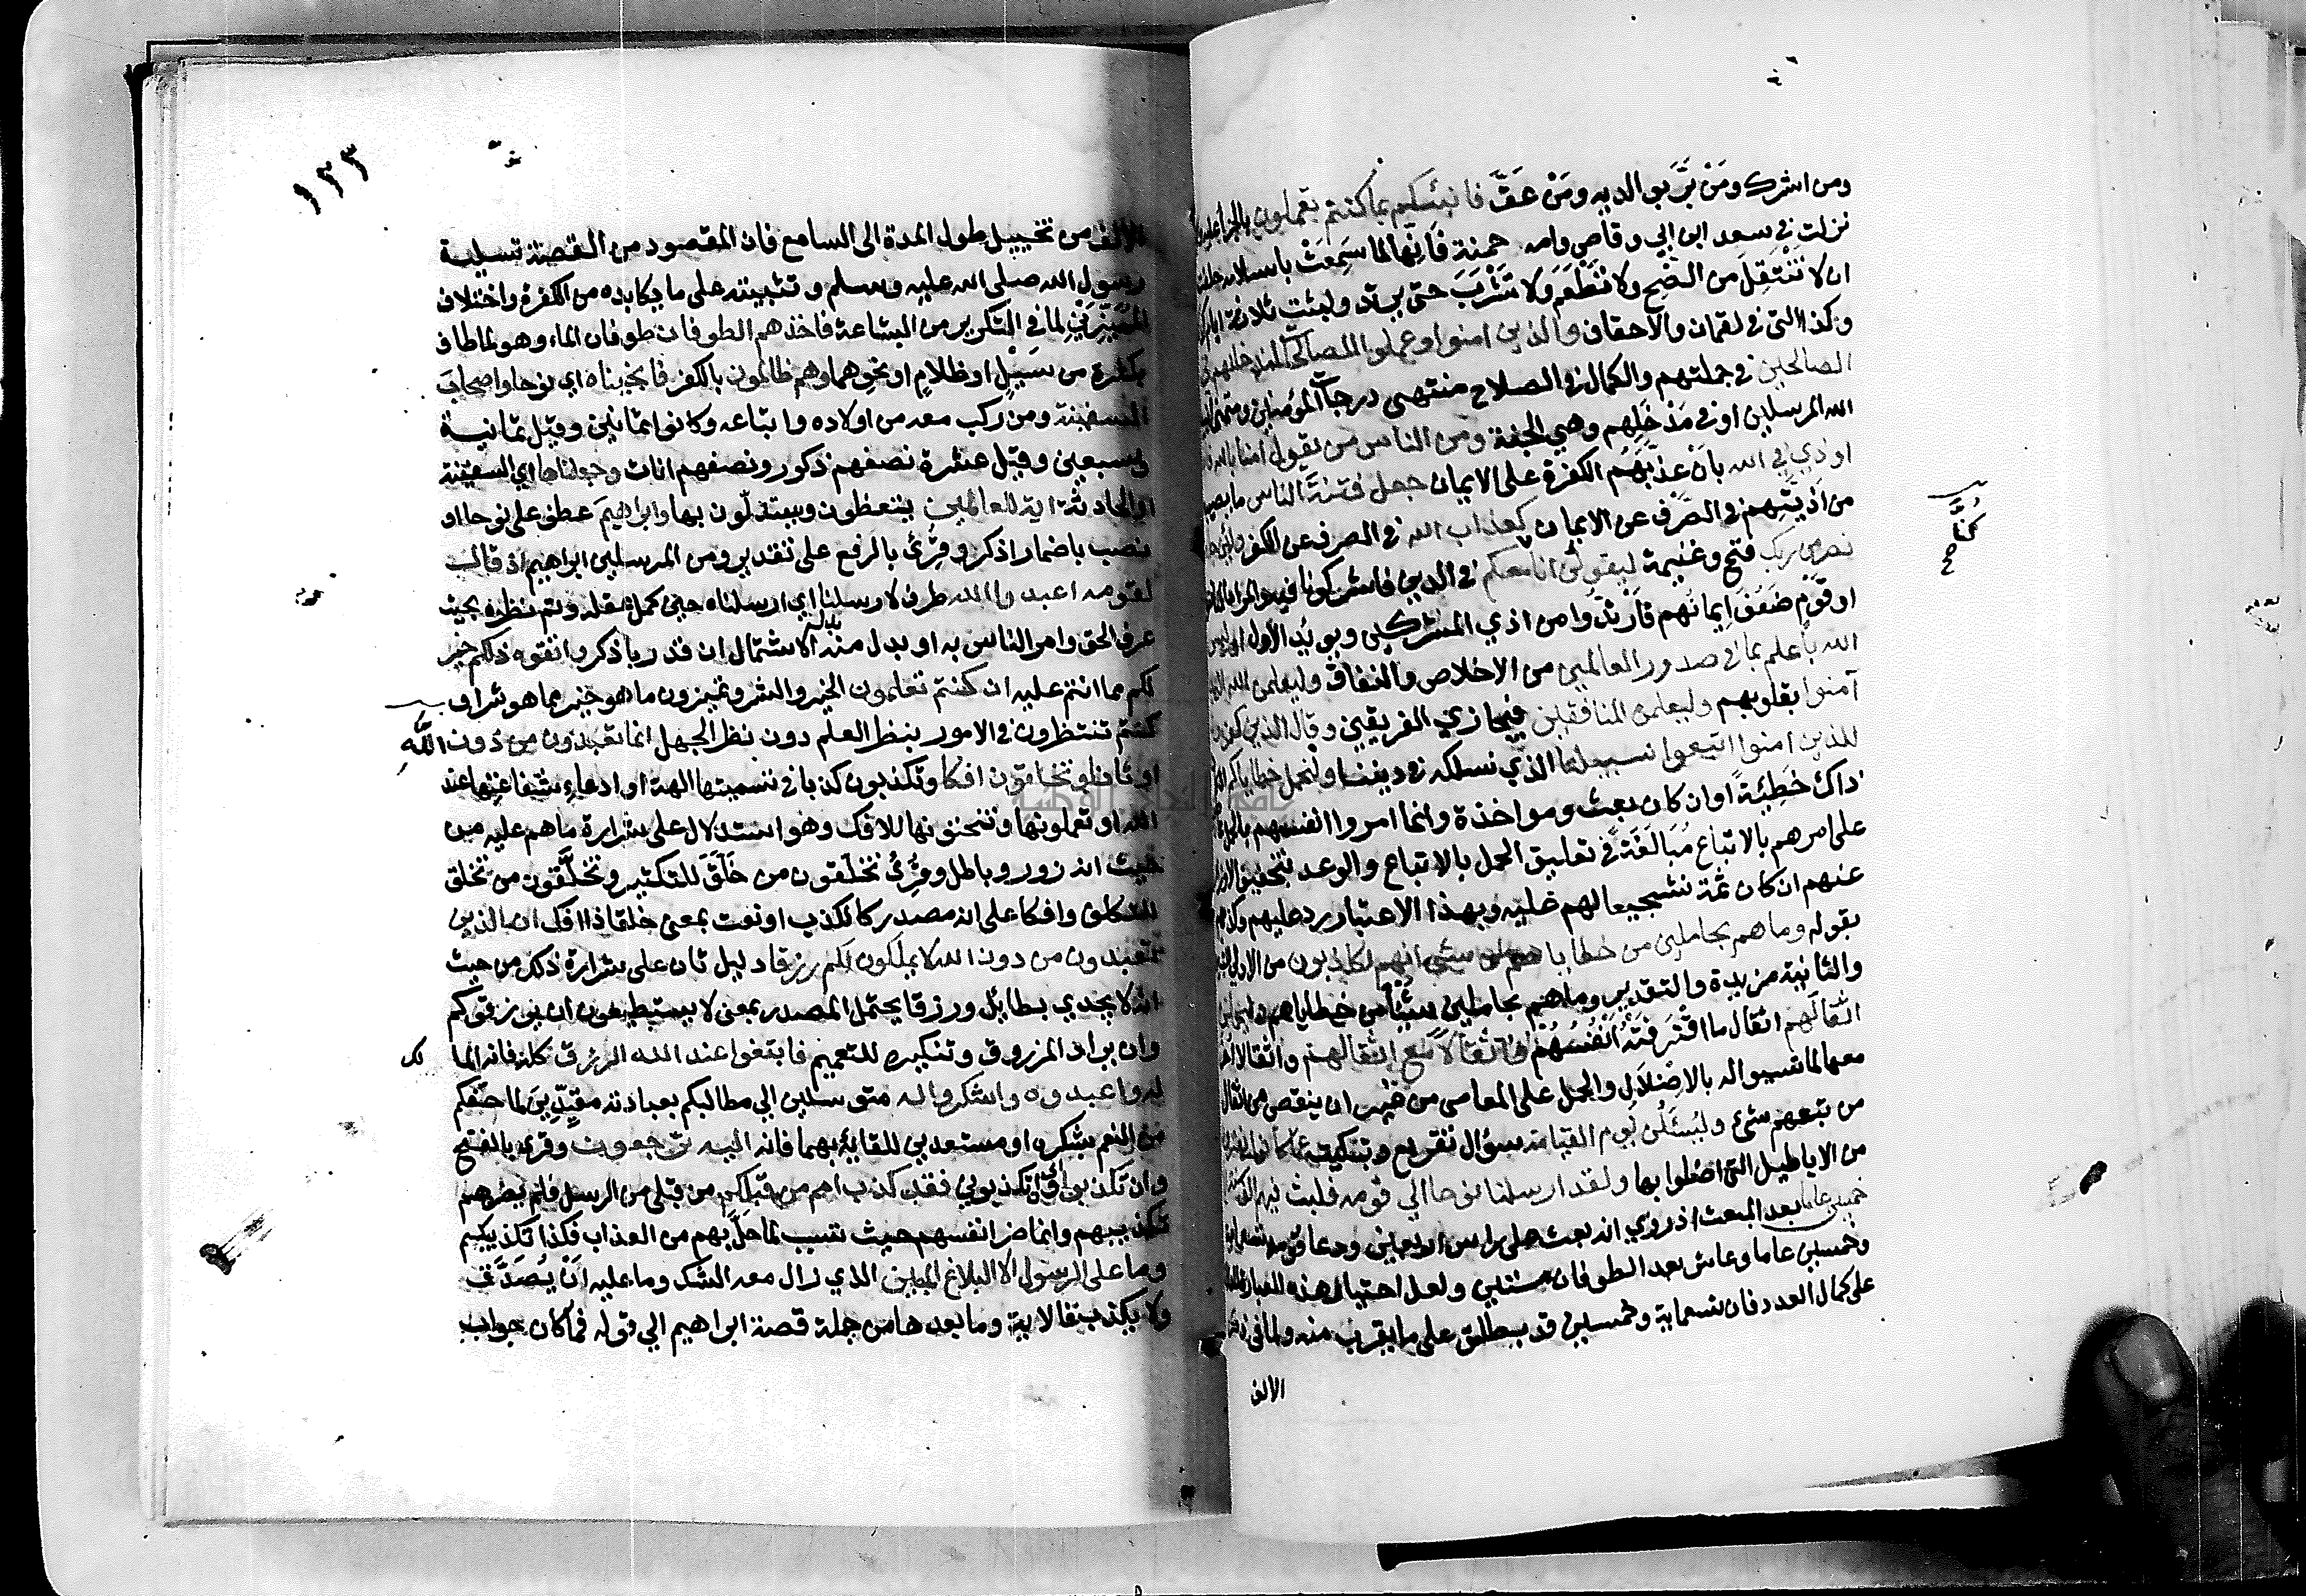 ومن اشرك ومَنْ بَرَّ بوالديه ومَنْ عَقَّ فانبئكم بما كنتم تعملون بالجزاء عليه
نزلت في سعد ابن ابي وقاص وامه حمنة فانها لما سَمِعَتْ باسلامه حلفت
ان لا تنتقل من الضِح ولا تَطْعَمَ ولا تَشْرَبَ حتى يرتد ولبثت ثلاثة ايام
وكذا التي في لقمان والاحقاف والذين امنوا وعملوا الصالحات لندخلنهم في
الصالحين في جملتهم والكمال في الصلاح منتهى درجات المؤمنين ومتمنى انبياء
الله المرسلين او في مَدْخَلِهم وهي الجنة ومن الناس من يقول امنا بالله فاذا
اوذي في الله بأنْ عذبَّهُم الكفرة على الايمان جعل فتنة الناس ما يصيبهم
من اَذيتِهِم في الصَّرْف عن الايمان كعذاب الله في الصرف عن الكفر ولئن جاء
نصر من ربك فتح وغنيمة ليقولن انا كنا معكم في الدين فاشركونا فيه والمراد المنافقون
او قوم ضَعُفَ ايمانُهم فارتدوا من اذي المشركين ويويد الاول اوليس
الله باعلم بما في صدور العالمين من الاخلاص والنفاق وليعلمن الله الذين
آمنوا بقلوبهم وليعلمن المنافقين فيجازي الفريقين وقال الذين كفروا
للذين امنوا اتبعوا سبيلنا الذي نسلكه في ديننا ولنحمل خطاياكم ان كان
ذاك خطِيئةً او ان كان بعث ومواخذة وانما امروا انفسهم بالحمل
على امرهم بالاتباع مُبَالَغَةً في تعليق الحمل بالاتباع والوعد بتخفيف الاوزار
عنهم ان كان ثمة تشجيعا لهم عليه وبهذا الاعتبار رد عليهم وكذبهم
بقوله وما هم بحاملين من خطاياهم من شيء انهم لكاذبون من الاولى للتبيين
والثانية مزيدة والتقدير وما هم بحاملين شيئا من خطاياهم وليحملن
اثقالهم اثقال ما اقْتَرَفَتْه اَنْفُسُهُم واثقالا مع اثقالهم واثقالا اخر
معها لما تسببوا له بالاضْلاَلِ والحمل على المعاصي من غير ان ينقص من اثقال
من تبعهم شئ وليُسْئَلُن يوم القيامة سؤال تقريع وتبكيت عما كانوا يفترون
من الاباطيل التي اضلوا بها ولقد ارسلنا نوحا الي قومه فلبث فيهم الف سنة الا
خمسين عاما بعد المبعث اذ روي انه بعث على راس اربعين ودعا قومه تسعماية
وخمسين عاما وعاش بعد الطوفان ستين ولعل اختيار هذه العبارة للدلالة
على كمال العدد فان تسعماية وخمسين قد يطلق على ما يقرب منه ولما في ذكر
الالف
كُنَّا
صح
١٣٣
الالف من تخييل طول المدة الى السامع فان المقصود من القصة تسلية
رسول الله صلى الله عليه وسلم وتثبيته على ما يكابده من الكفرة واختلاف
المُمَيِّزَيْنِ لما في التكرير من البشاعة فاخذهم الطوفان طوفان الماء وهو لما طاف
بكثرة من سَيْلٍ او ظلامٍ او نحوهما وهم ظالمون بالكفر فانجيناه اي نوحا واصحاب
السفينة ومن ركب معه من اولاده واتباعه وكانوا ثمانين وقيل ثمانية
وسبعين وقيل عشرة نصفهم ذكور ونصفهم اناث وجعلناها اي السفينة
او الحادثة اية للعالمين يتعظون ويستدلون بها وابراهيمَ عطف على نوحا او
نصب باضمار اذكر وقُرِئَ بالرفع على تقدير ومن المرسلين ابراهيم اذ قال
لقومه اعبدوا الله ظرف لارسلنا اي ارسلناه حين كمل عقله وتم نظره بحيث
عرف الحق وامر الناس به او بدل منه بدل الاشتمال ان قدر باذكر واتقوه ذلكم خير
لكم مما انتم عليه ان كنتم تعلمون الخير والشر وتميزون ما هو خير مما هو شر او
كنتم تنتظرون في الامور بنظر العلم دون نظر الجهل انما تعبدون من دون اللَّهِ
اوثانا وتخلقون افكا وتكذبون كذبا في تسميتها الهة او ادعاءِ شفاعتها عند
الله او تعملونها وتنحتونها للافك وهو استدلال على شرارة ما هم عليه من
حيث انه زور وباطل وقُرِئَ تخلقون من خَلَّقَ للتكثير وتَخَلَّقون من تخلق
للتكلف وافكا على انه مصدر كالكذب او نعت بمعنى خلقا ذا افك ان الذين
تعبدون من دون الله لا يملكون لكم رزقا دليل ثان على شرارة ذلك من حيث
انه لا يجدي بطائل ورزقا يحتمل المصدر بمعنى لا يستطيعون ان يرزقوكم
وان يراد المرزوق وتنكيره للتعميم فابتغوا عند الله الرزق كله فانه المالك
له واعبدوه واشكروا له متوسلين الي مطالبكم بعبادته مقيِّدِينَ لما حفكم
من النعم بشكره او مستعدين للقايه بهما فانه اليه ترجعون وقرئ بالفتح
وان تكذبوا اي وان تكذبوني فقد كذب امم من قبلكم من قبلي من الرسل فلم يضرهم
تكذيبهم وانما ضر انفسهم حيث تسبب لما حَلَّ بهم من العذاب فكذا تكذيبكم
وما على الرسول الا البلاغ المبين الذي زال معه الشك وما عليه اَنْ يُصَدَّقَ
ولا يكذب فالاية وما بعدها من جملة قصة ابراهيم الي قوله فما كان جواب